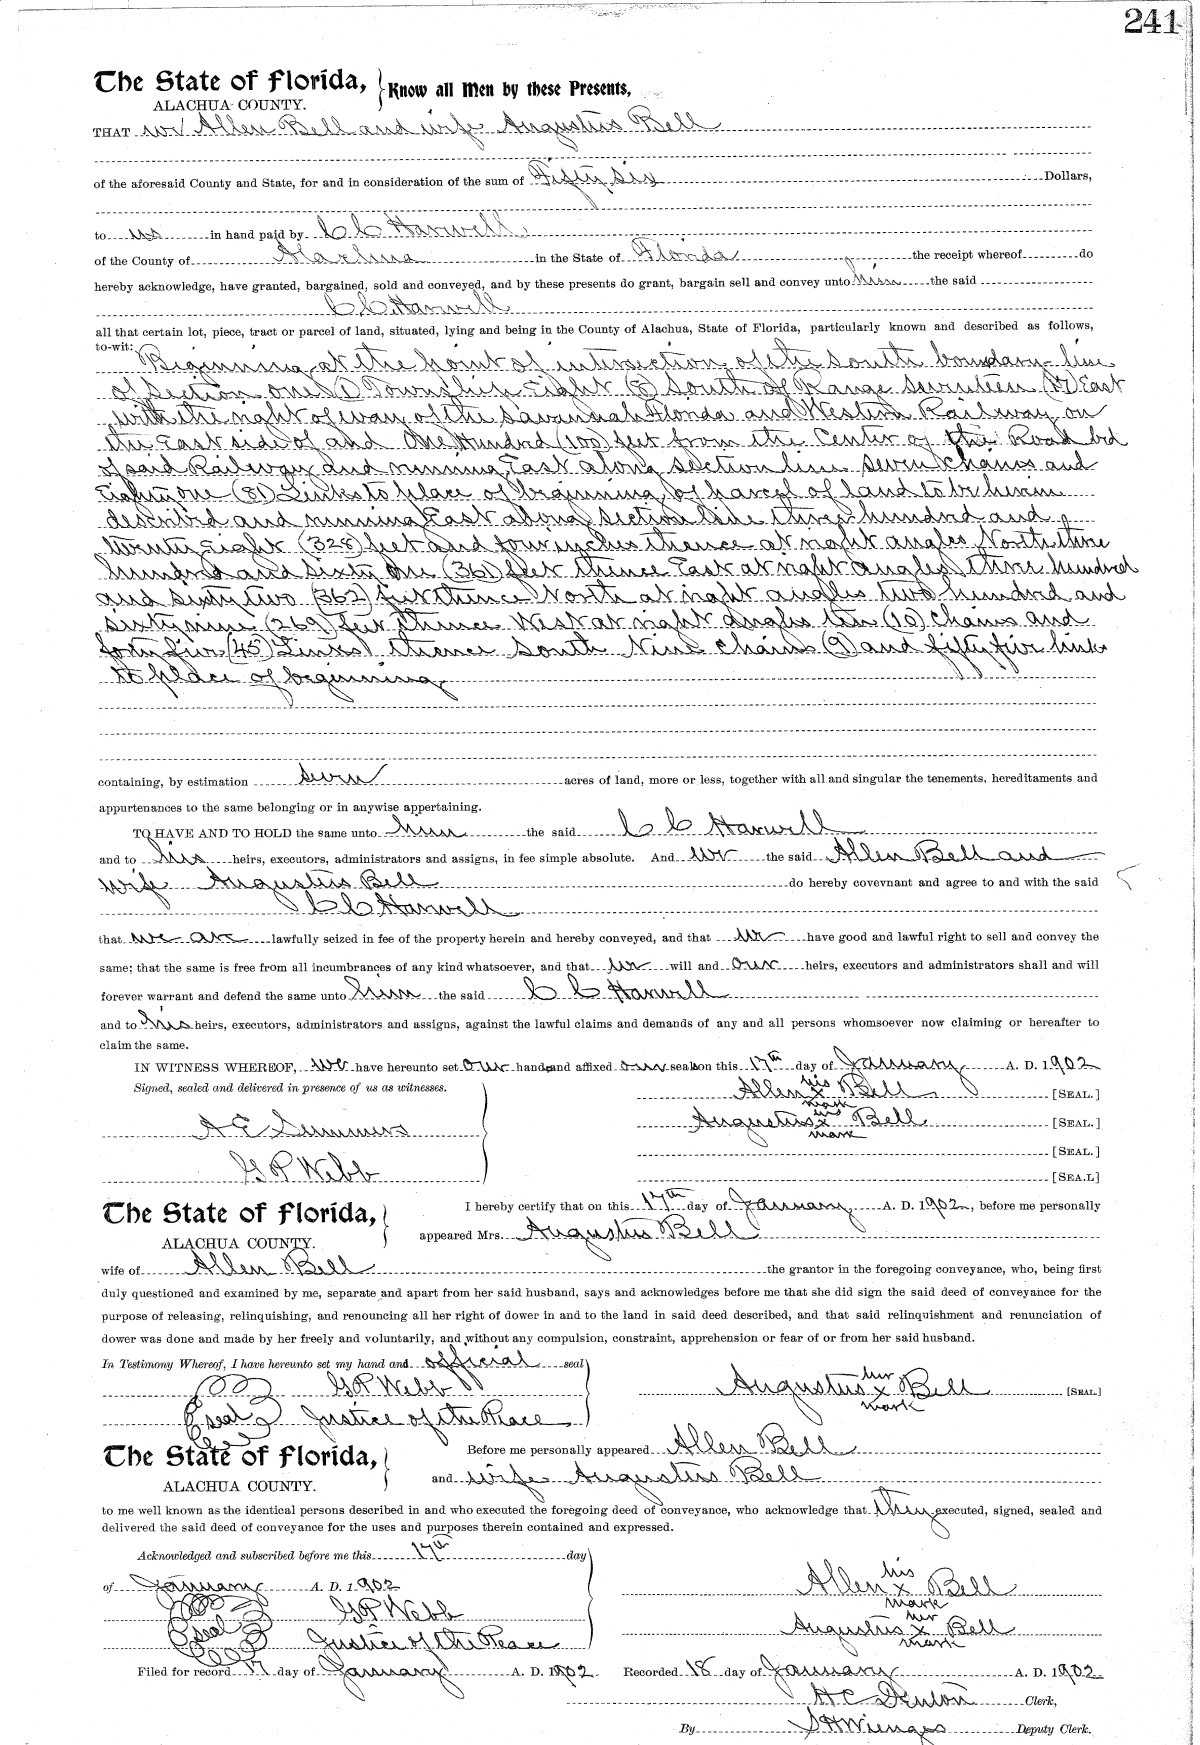 241
The State of Florida, Know all Men by these Presents,
ALACHUA COUNTY.
THAT we Allen Bell and wife Augustus Bell
of the aforesaid County and State, for and in consideration of the sum of Fifty Six Dollars,
to us in hand paid by C C Harwell
of the County of Alachua in the State of Florida the receipt whereof do
hereby acknowledge, have granted, bargained, sold and conveyed, and by these presents do grant, bargain sell and convey unto him the said
C C Harwell
all that certain lot, piece, tract or parcel of land, situated, lying and being in the County of Alachua, State of Florida, particularly known and described as follows,
to-wit:
Beginning at the point of intersection of the South boundary line
of Section one (1) Township Eight (8) South of Range Seventeen (17) East
with the right of way of the Savannah Florida and Western Railway on
the East side of and One Hundred (100) feet from the Center of the Road bd
of said Railway and running East along section line seven chains and
Eighty one (81) Links to place of beginning of parcel of land to be herein
described and running East along section line three hundred and
twenty Eight (328) feet and four inches thence at right angles North three
hundred and sixty one (361) feet thence East at right angles three hundred
and sixty two (362) feet thence North at right angles two hundred and
sixty nine (269) feet thence West at right angles ten (10) chains and
forty five (45) Links thence South Nine chains (9) and fifty five links
to place of beginning
containing, by estimation seven acres of land, more or less, together with all and singular the tenements, hereditaments and
appurtenances to the same belonging or in anywise appertaining.
TO HAVE AND TO HOLD the same unto him the said C C Harwell
and to his heirs, executors, administrators and assigns, in fee simple absolute. And we the said Allen Bell and
wife Augustus Bell do hereby covevnant and agree to and with the said
C C Harwell
that we are lawfully seized in fee of the property herein and hereby conveyed, and that we have good and lawful right to sell and convey the
same; that the same is free from all incumbrances of any kind whatsoever, and that we will and our heirs, executors and administrators shall and will
forever warrant and defend the same unto him the said C C Harwell
and to his heirs, executors, administrators and assigns, against the lawful claims and demands of any and all persons whomsoever now claiming or hereafter to
claim the same.
IN WITNESS WHEREOF, we have hereunto set our hands and affixed our seals on this 17th day of January A. D. 1902
Signed, sealed and delivered in presence of us as witnesses.
his
Allen x Bell [SEAL.]
mark
his
A E Summers Augustus x Bell [SEAL.]
mark
[SEAL.]
G P Webb [SEA.L]
The State of Florida, I hereby certify that on this 17th day of January A. D. 1902, before me personally
ALACHUA COUNTY. appeared Mrs. Augustus Bell
wife of Allen Bell the grantor in the foregoing conveyance, who, being first
duly questioned and examined by me, separate and apart from her said husband, says and acknowledges before me that she did sign the said deed of conveyance for the
purpose of releasing, relinquishing, and renouncing all her right of dower in and to the land in said deed described, and that said relinquishment and renunciation of
dower was done and made by her freely and voluntarily, and without any compulsion, constraint, apprehension or fear of or from her said husband.
In Testimony Whereof, I have hereunto set my hand and official seal
her
G P Webb Augustus x Bell [SEAL]
mark
seal Justice of the Peace
The State of Florida, Before me personally appeared Allen Bell
ALACHUA COUNTY. and wife Augustus Bell
to me well known as the identical persons described in and who executed the foregoing deed of conveyance, who acknowledge that they executed, signed, sealed and
delivered the said deed of conveyance for the uses and purposes therein contained and expressed.
Acknowledged and subscribed before me this 17th day
of January A. D. 1902
his
Allen x Bell
mark
G P Webb
her
Augustus x Bell
mark
seal Justice of the Peace
Filed for record 17 day of January A. D. 1902 Recorded 18 day of January A. D. 1902
H C Denton Clerk,
By S H Wienges Deputy Clerk.